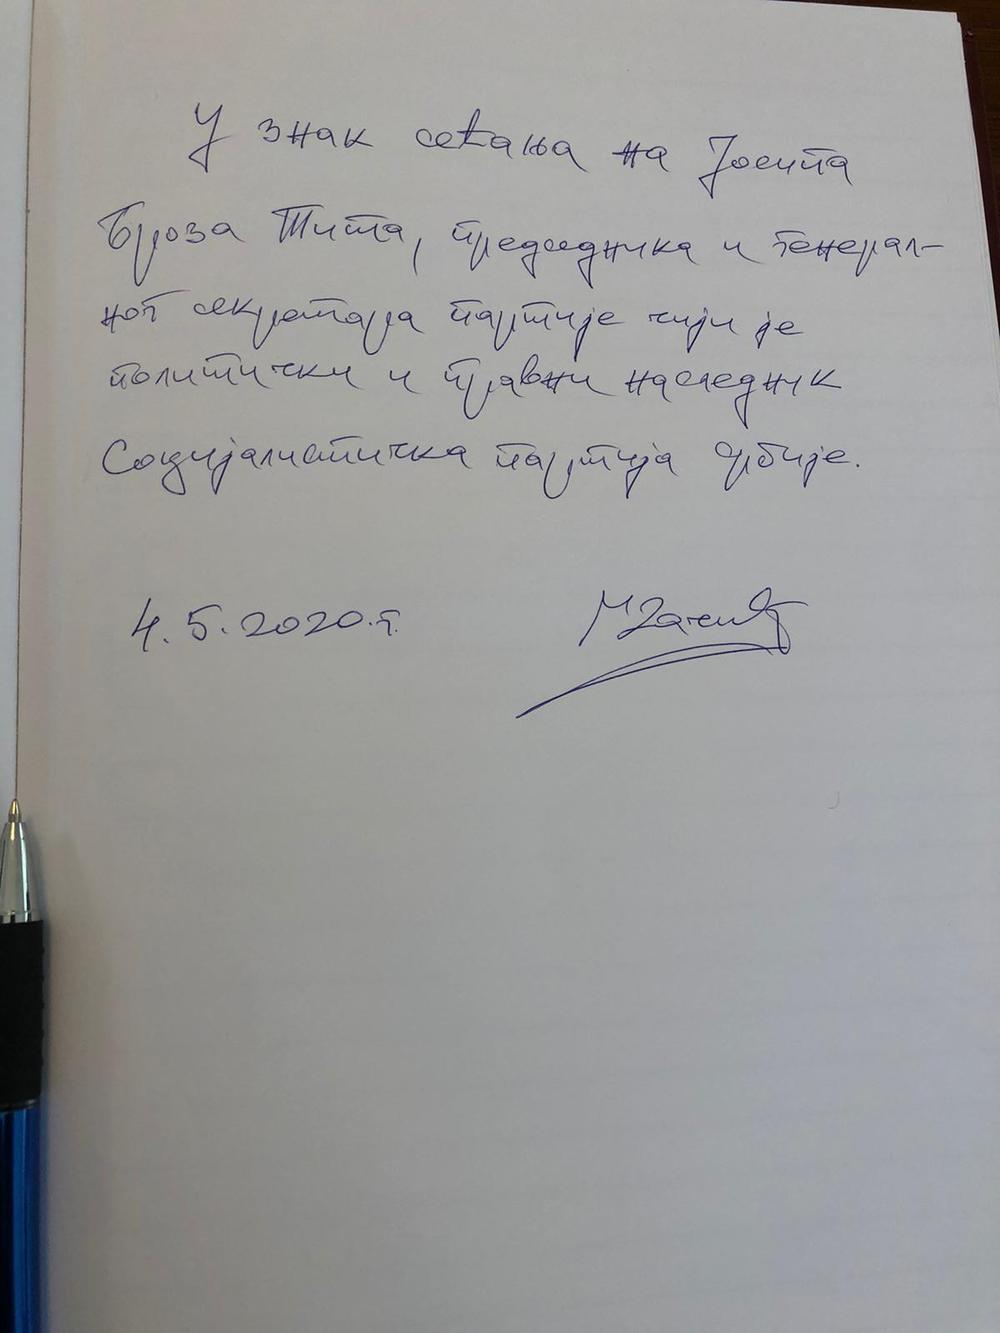 У знак сећања на Јосипа
Броза Тита, председника и генерал-
ног секретара партије чији је
политички и правни наследник
Социјалистичка партија Србије.
4.5.2020.г.